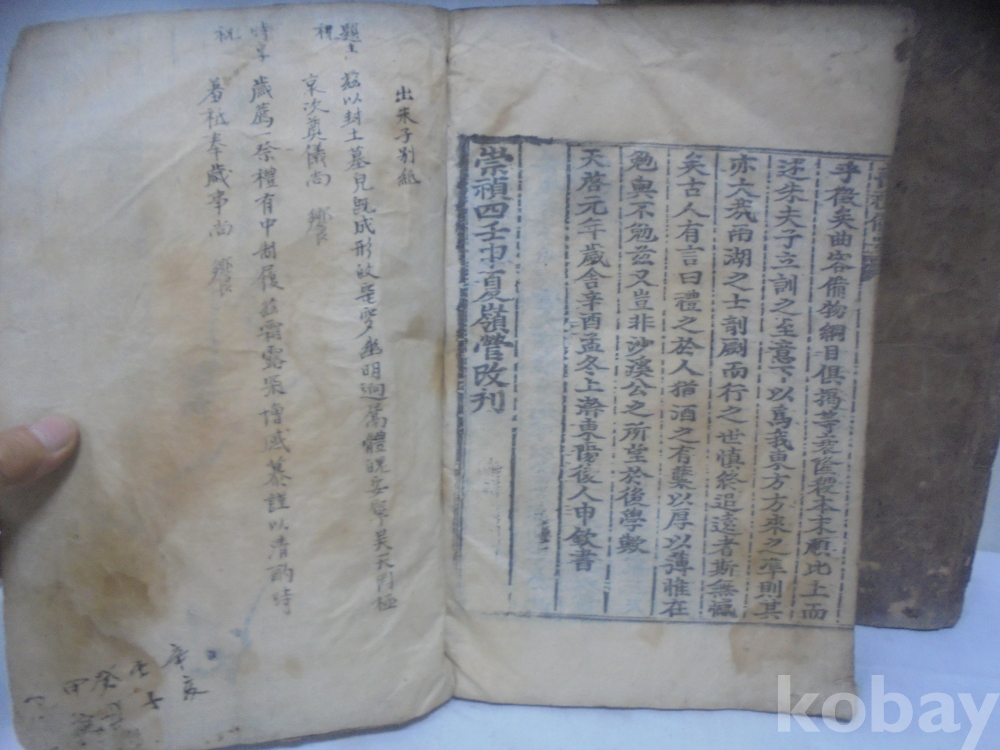 乎微矣曲容備物綱目俱擧等衰隆殺本末顧此上而
述朱夫子立訓之至意下以爲我東方方來之準則其
亦大哉兩湖之士剞劂而行之世愼終追遠者斯無憾
矣古人有言曰禮之於人猶酒之有蘖以厚以薄惟在
勉與不勉玆又豈非沙溪公之所望於後學歟
天啓元年歲舍辛酉孟冬上澣東陽後人申欽書
崇禎四壬申夏嶺營改刊
出朱子別組
題主 玆以封土墓兆旣成形 幽明逈 體魄 昊天罔極
祝 哀次奠儀尙 饗
時享 歲薦一祭禮有中制履玆霜露 增感慕謹以淸酌時
祝 羞祗奉歲事尙 饗
kobay